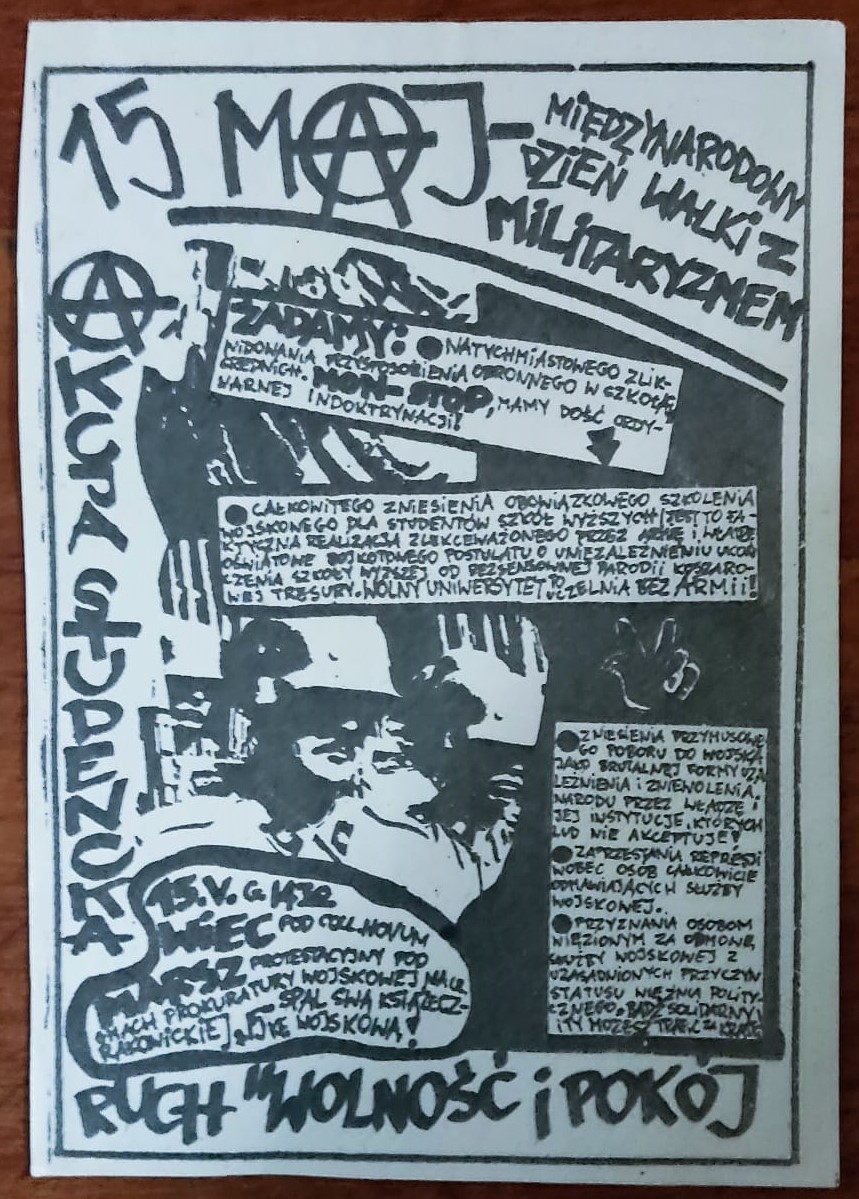 15 MAJ-
MIĘDZYNARODOWY
DZIEŃ WALKI Z
MILITARYZMEM
AKCJA STUDENCKA
ŻĄDAMY: ● NATYCHMIASTOWEGO ZLIK-
WIDOWANIA PRZYSPOSOBIENIA OBRONNEGO W SZKOŁACH
ŚREDNICH. MON-STOP, MAMY DOŚĆ ORDY-
NARNEJ INDOKTRYNACJI!
● CAŁKOWITEGO ZNIESIENIA OBOWIĄZKOWEGO SZKOLENIA
WOJSKOWEGO DLA STUDENTÓW SZKÓŁ WYŻSZYCH/JEST TO FA-
KTYCZNA REALIZACJA ZLEKCEWAŻONEGO PRZEZ ARMIĘ I WŁADZE
OŚWIATOWE BOJKOTOWEGO POSTULATU O UNIEZALEŻNIENIU UKOŃ
CZENIA SZKOŁY WYŻSZEJ OD BEZSENSOWNEJ PARODII KOSZARO-
WEJ TRESURY. WOLNY UNIWERSYTET TO UCZELNIA BEZ ARMII!
● ZNIESIENIA PRZYMUSOWE
GO POBORU DO WOJSKA
JAKO BRUTALNEJ FORMY UZA
LEŻNIENIA I ZNIEWOLENIA
NARODU PRZEZ WŁADZĘ I
JEJ INSTYTUCJE, KTÓRYCH
LUD NIE AKCEPTUJE!
● ZAPRZESTANIA REPRESJI
WOBEC OSÓB CAŁKOWICIE
ODMAWIAJĄCYCH SŁUŻBY
WOJSKOWEJ.
● PRZYZNANIA OSOBOM
WIĘZIONYM ZA ODMOWĘ
SŁUŻBY WOJSKOWEJ Z
UZASADNIONYCH PRZYCZYN
STATUSU WIĘŹNIA POLITY-
CZNEGO. BĄDŹ SOLIDARNY!
I TY MOŻESZ TRAFIĆ ZA KRATĘ
15.V. G. 14³⁰
WIEC POD COLL. NOVUM
MARSZ PROTESTACYJNY POD
GMACH PROKURATURY WOJSKOWEJ NA UL
RAKOWICKIEJ. SPAL SWĄ KSIĄŻECZ-
KĘ WOJSKOWĄ!
RUCH "WOLNOŚĆ i POKÓJ